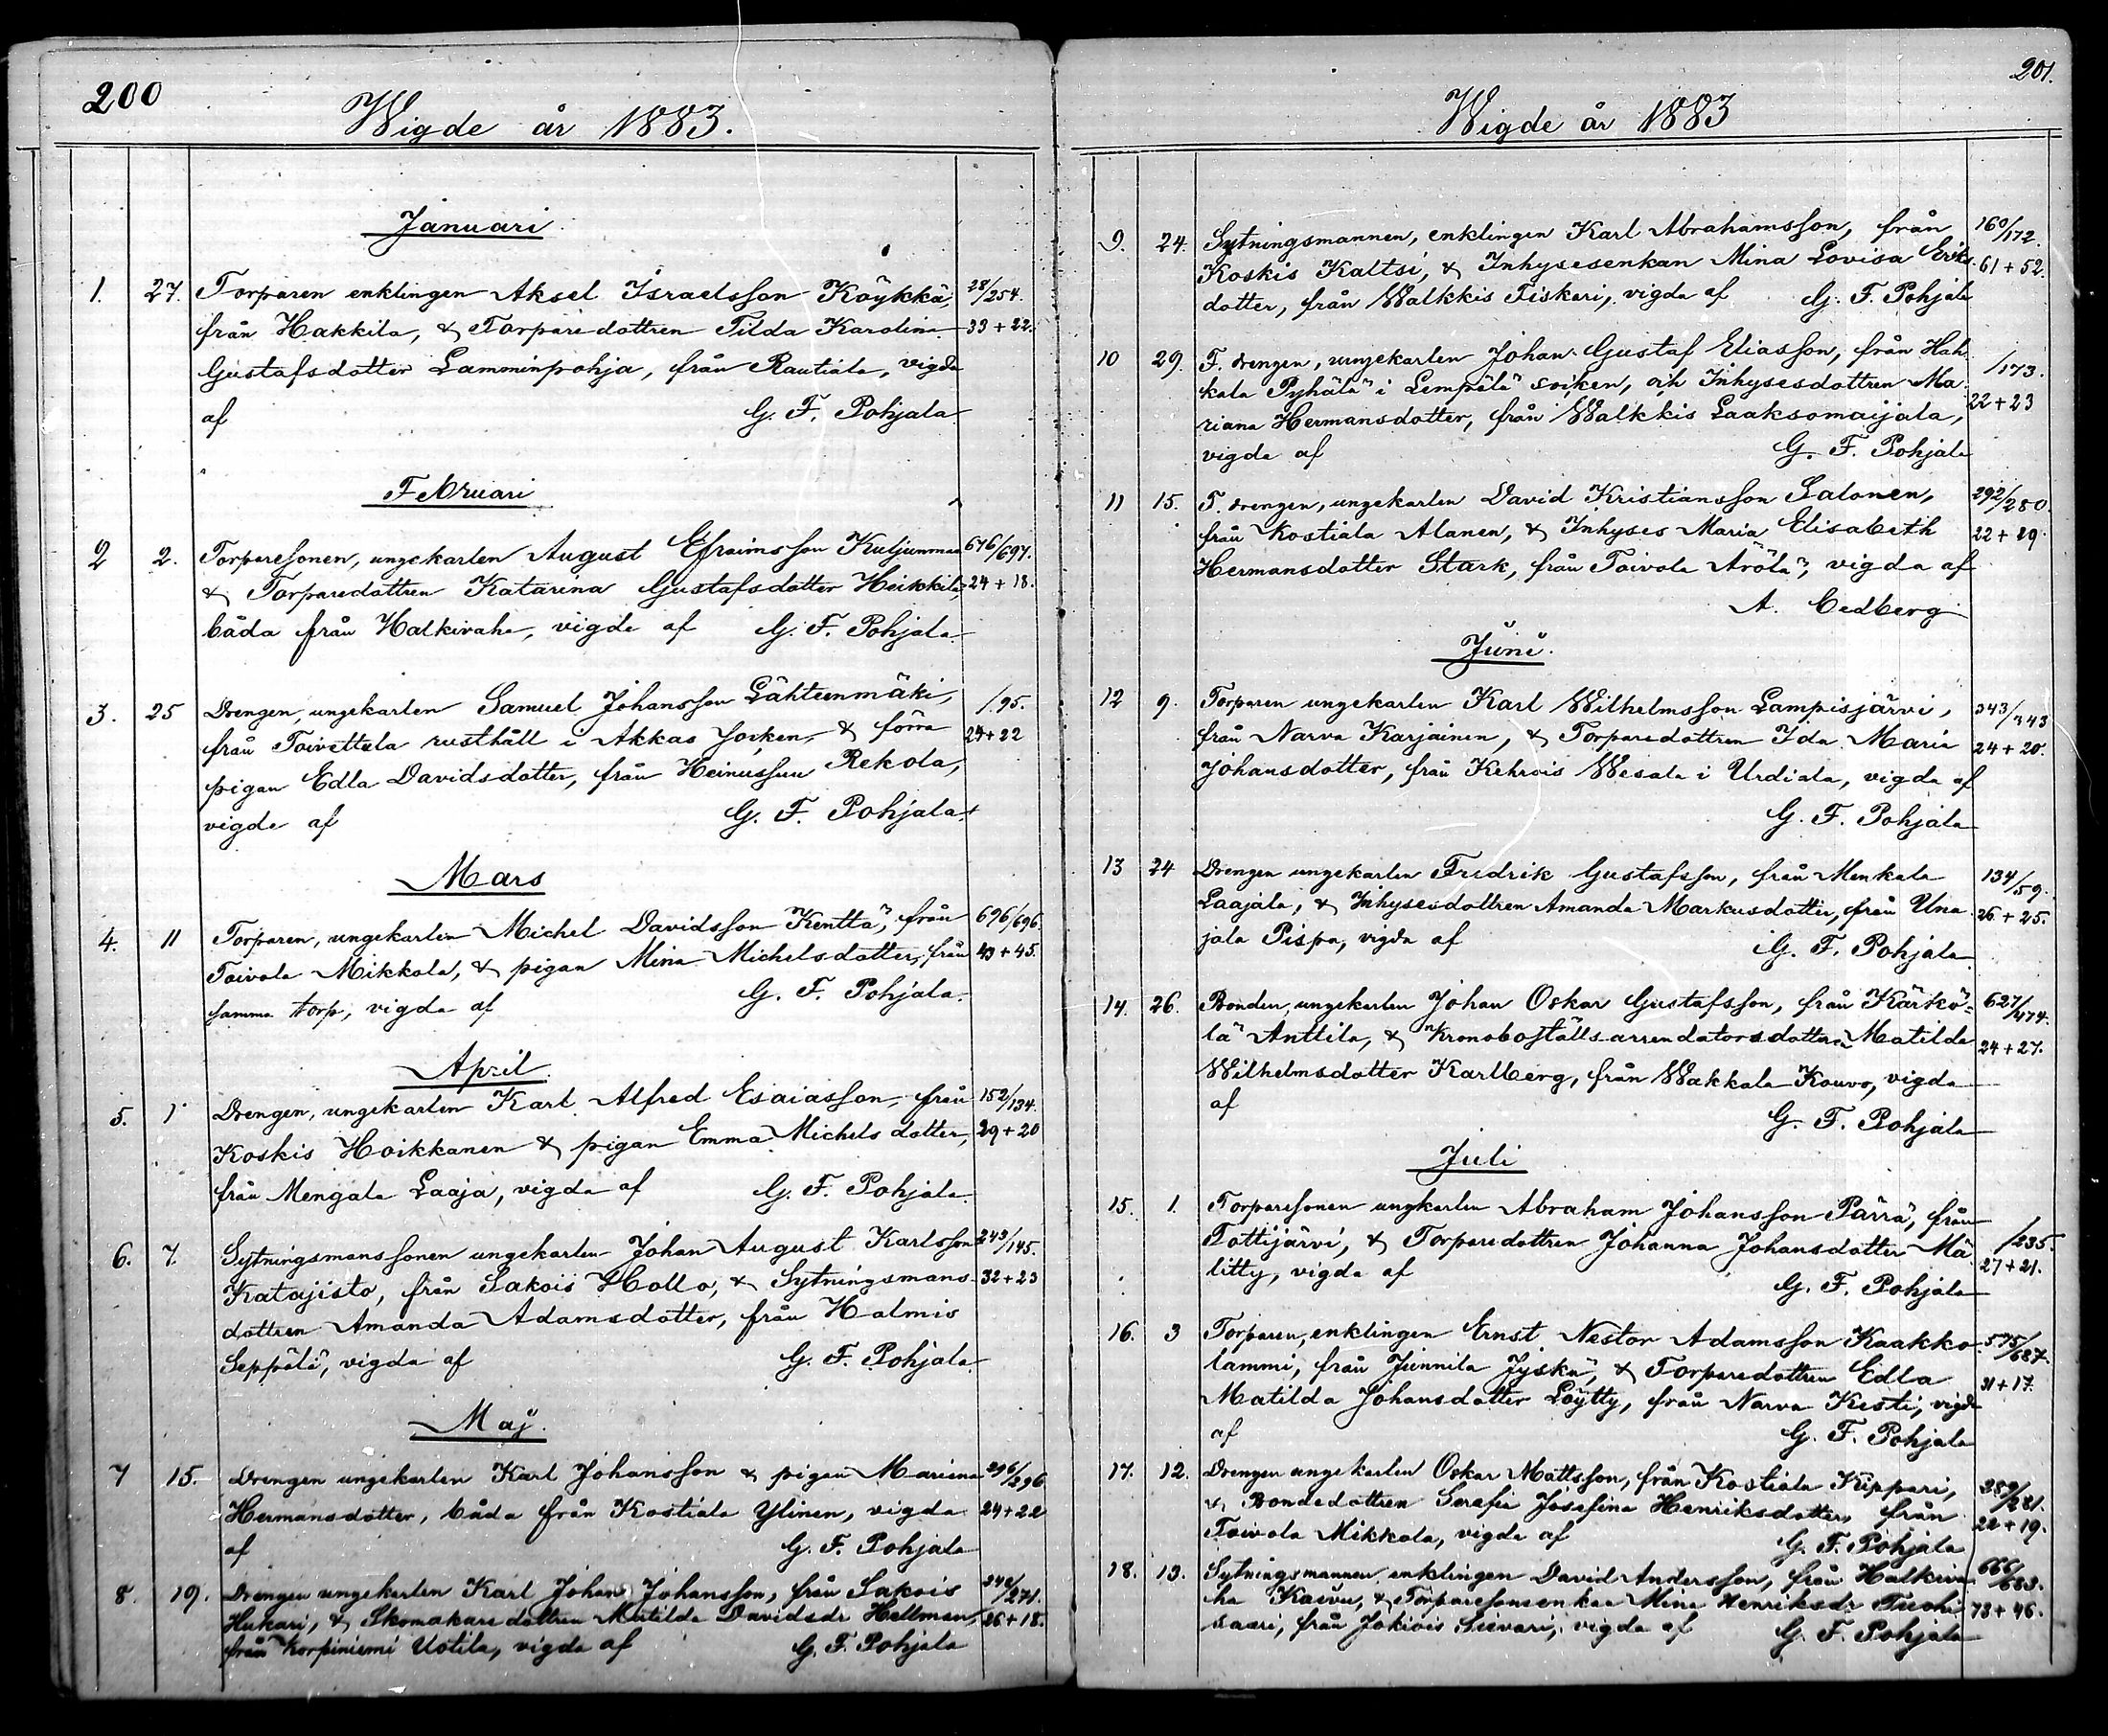 200
Wigde år 1883.
Januari
1. 27. Torparen enklingen Aksel Israelsson Köykkä, 28/254.
från Hakkila, & Torparedottren Tilda Karolina 33+22.
Gustafsdotter Lamminpohja, från Rautiala, vigda
af G. F. Pohjala
Februari
2 2. Torparesonen, ungekarlen August Efraimsson Kuljunmaa 676/697.
& Torparedottren Katarina Gustafsdotter Heikkilä, 24+18.
båda från Halkivaha, vigde af G. F. Pohjala
3. 25 Drengen, ungekarlen Samuel Johansson Lähteenmäki, /95.
från Toivettula rusthåll i Akkas socken, & förra 24+22
pigan Edla Davidsdotter, från Heinusuu Rekola,
vigde af G. F. Pohjala.
Mars
4. 11 Torparen, ungekarlen Michel Davidsson Kenttä, från 696/696.
Toivola Mikkola, & pigan Mina Michelsdotter, från 43+45.
samma torp, vigda af G. F. Pohjala.
April
5. 1 Drengen, ungekarlen Karl Alfred Esaiasson, från 152/134.
Koskis Hoikkanen & pigan Emma Michelsdotter, 29+20
från Mengala Laaja, vigda af G. F. Pohjala.
6. 7. Sytningsmanssonen ungekarlen Johan August Karlsson 243/145.
Katajisto, från Sakois Hollo, & Sytningsmans- 32+23
dottren Amanda Adamsdotter, från Halmis
Seppälä, vigda af G. F. Pohjala
Maj.
7 15. Drengen ungekarlen Karl Johansson & pigan Mariana 296/296
Hermansdotter, båda från Kostiala Ylinen, vigda 24+22
af G. F. Pohjala
8. 19. Drengen ungekarlen Karl Johan Johansson, från Sakois 248/271.
Hukari, & Skomakaredottren Matilda Davidsdr Hellman, 26+18.
från Korpiniemi Uotila, vigda af G. F. Pohjala
201.
Wigde år 1883
9. 24. Sytningsmannen, enklingen Karl Abrahamsson, från 160/172.
Koskis Kaltsi, & Inhysesenkan Mina Lovisa Eriks- 61+52.
dotter, från Walkkis Fiskari, vigda af G. F. Pohjala
10 29. F. drengen, ungekarlen Johan Gustaf Eliasson, från Hah- /173.
kala Pyhälä i Lempälä socken, och Inhysesdottren Ma- 22+23
riana Hermansdotter, från Walkkis Laaksomaijala,
vigda af G. F. Pohjala
11 15. F. drengen, ungekarlen David Kristiansson Salonen, 292/280.
från Kostiala Alanen, & Inhyses Maria Elisabeth 22+29.
Hermansdotter Stark, från Toivola Äröla, vigda af
A. Cedberg
Juni.
12 9. Torparen ungekarlen Karl Wilhelmsson Lampisjärvi, 343/343
från Narva Karjainen, & Torparedottren Ida Maria 24+20.
Johansdotter, från Kehrois Wesala i Urdiala, vigda af
G. F. Pohjala
13 24 Drengen ungekarlen Fredrik Gustafsson, från Menkala 134/59.
Laajala, & Inhysesdottren Amanda Markusdotter, från Una- 26+25.
jala Pispa, vigda af G. F. Pohjala
14. 26. Bonden, ungekarlen Johan Oskar Gustafsson, från Kärkö- 627/474.
lä Anttila, & Kronoboställsarrendatorsdottren Matilda 24+27.
Wilhelmsdotter Karlberg, från Wakkala Kouvo, vigda
af G. F. Pohjala
Juli
15. 1. Torparesonen ungkarlen Abraham Johansson Pärrä, från
Tottijärvi, & Torparedottren Johanna Johansdotter Mä- /235.
litty, vigda af G. F. Pohjala 27+21.
16. 3 Torparen, enklingen Ernst Nestor Adamsson Kaakko- 575/687.
lammi, från Junnila Jyskä, & Torparedottren Edla
Matilda Johansdotter Löytty, från Narva Kesti, vigda 31+17.
af G. F. Pohjala
17. 12. Drengen ungekarlen Oskar Mattsson, från Kostiala Kippari, 289/281.
& Bondedottren Serafia Josefina Henriksdotter, från 22+19.
Toivola Mikkola, vigda af G. F. Pohjala
18. 13. Sytningsmannen enklingen David Andersson, från Halkiva- 666/683.
ha Kaivu, & Torparesonsenkan Mina Henriksdr Tuohi- 73+46.
saari, från Jokiois Sievari, vigda af G. F. Pohjala